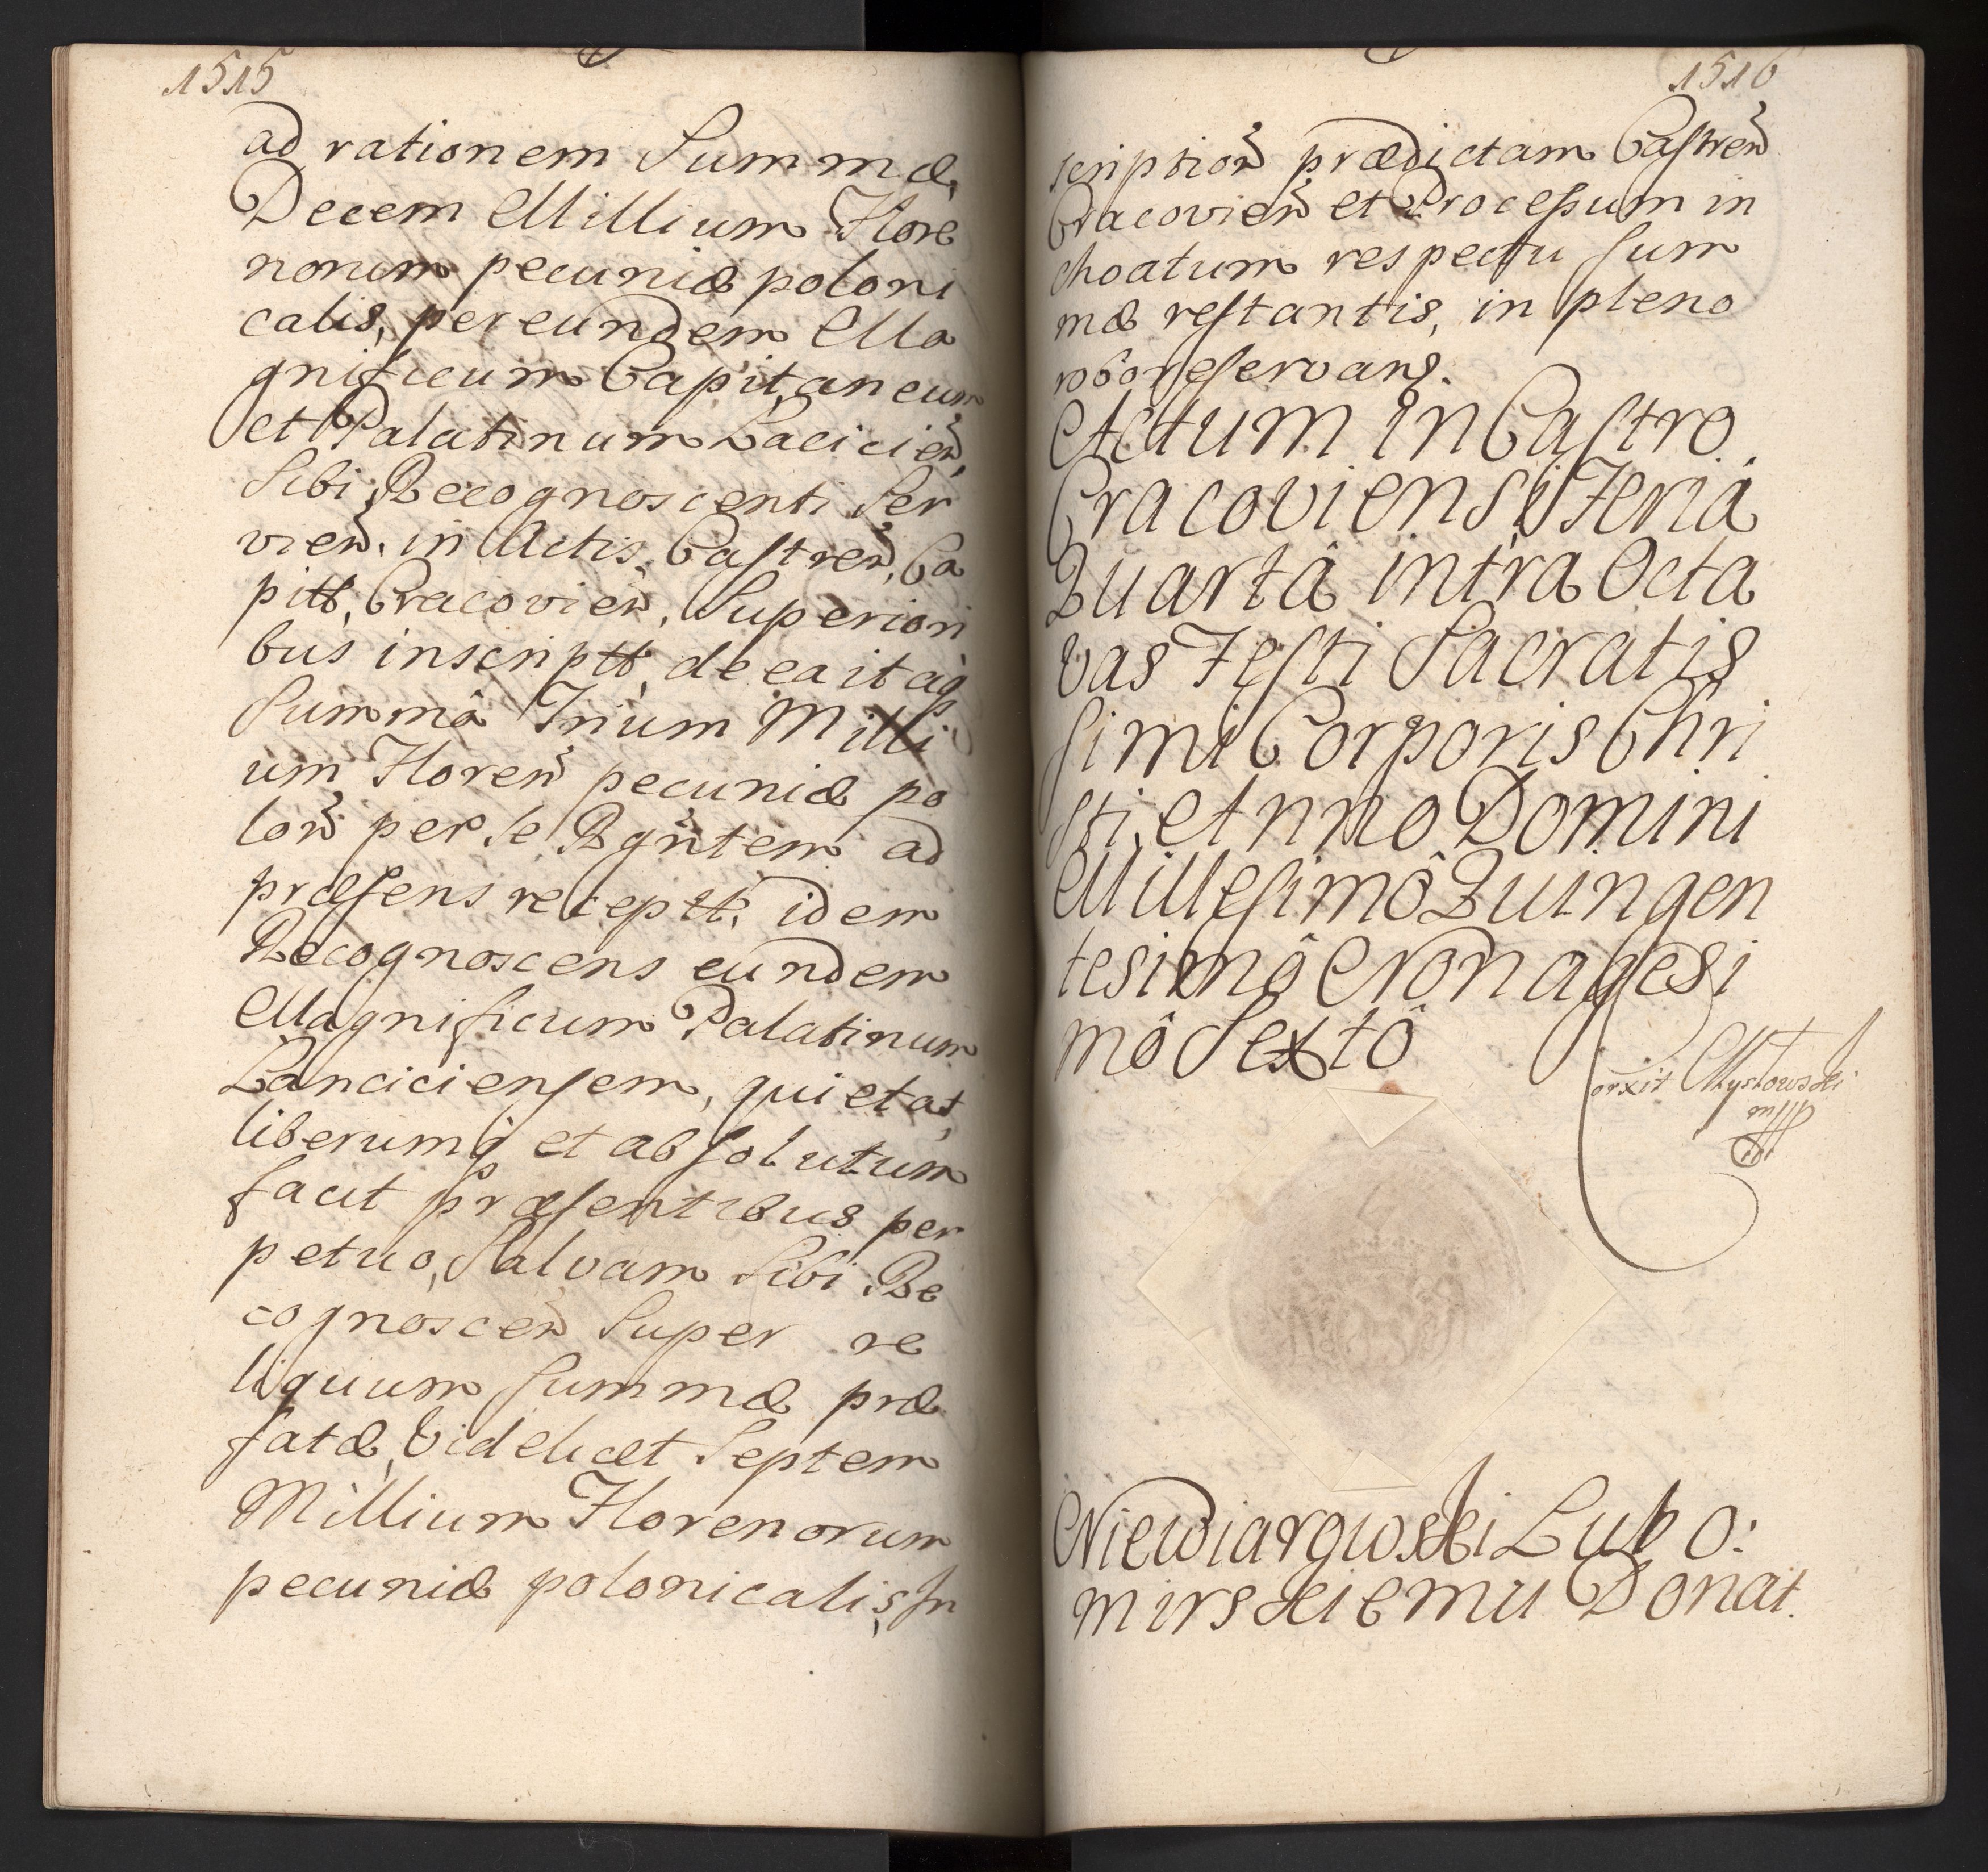 1515
ad rationem Summæ
Decem Millium Flore
norum pecuniæ poloni
calis, per eundem Ma
gnificum Capitaneum
et Palatinum Lacicień,
Sibi Recognoscenti Ser
vień. in Actis Castreń, Ca
pitt, Cracovień, Superiori
bus inscriptt, de ea itaq
Summâ Trium Milli
um Floreń pecuniæ po
loń per se Rgńtem ad
præsens receptt, idem
Recognoscens eundem
Magnificum Palatinum
Lanciciensem, quietat,
liberumq et absolutum
facit præsentibus per
petuo, Salvam Sibi Re
cognosceń Super re
liquum summæ præ
fatæ, Videlicet Septem
Millium Florenorum
pecuniæ polonicalis, In
1516
scriptioń prædictam Castreń
Cracovień et Processum in
choatum respectu sum
mæ restantis, in pleno
robore servans.
Actum in Castro
Cracoviensi Feriâ
Quartâ intra Octa
vas Festi Sacratis
simi Corporis Chri
sti, Anno Domini
Millesimô Quingen
tesimô Nonagesi
mô Sextô
orxit Mystowski
mpp
Niewiarowski Lubo:
mirskiemu Donat.